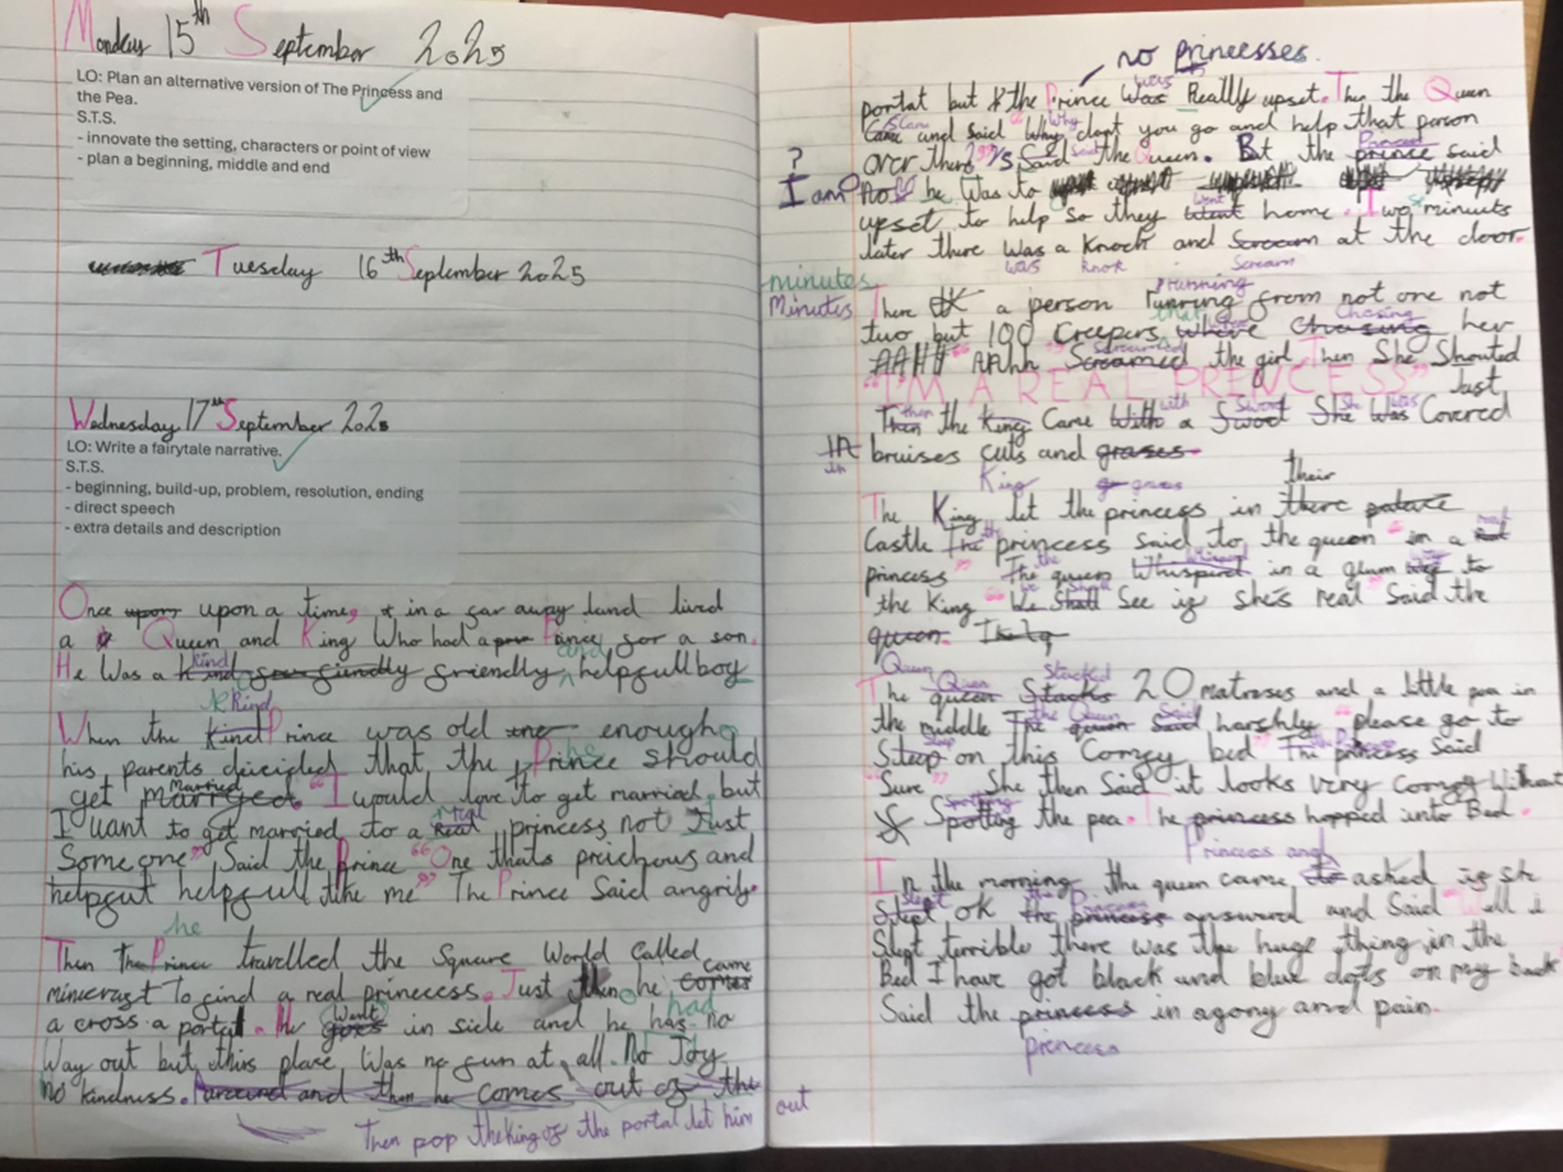 Monday 15th September 2025
LO: Plan an alternative version of The Princess and
the Pea.
S.T.S.
- innovate the setting, characters or point of view
- plan a beginning, middle and end
Tuesday 16th September 2025
Wednesday 17th September 2025
LO: Write a fairytale narrative.
S.T.S.
- beginning, build-up, problem, resolution, ending
- direct speech
- extra details and description
Once upon a time, in a far away land lived
a Queen and King Who had a Prince for a son.
He Was a kind friendly and helpfull boy
Kind
When the Prince was old enough
his parents dicided that the he should
get Married. "I would love to get married, but
I want to get married to a real princess not Just
Someone" Said the Prince "One thats prichous and
helpfull like me" The Prince Said angrily.
he
Then the Prince travelled the Square World Called
minecraft To find a real princcess. Just then he came
a cross a portal. He Went in side and he had no
Way out but this place Was no fun at all. No Joy
No kindness. around and then he comes out of the
Then pop the king of the portal let him out
no princesses.
portat but the Prince was Really upset. Then the Queen
Came and said "Why dont you go and help that person
over there?" Said the Queen. But the prince said
I am he Was to
upset to help so they went home. Two minuits
later there Was a knock and Scream at the door.
minutes
Minutes
There a person running from not one not
two but 100 Creepers that Chasing her
"AAhh" Screamed the girl. Then She Shouted
"I'M A REAL PRINCESS" Just
then the King Came with a Sword She was Covered
In bruises cuts and grases
The King let the princess in their
Castle the princess said to the queen "im a real
princess" the queen Whispird in a glum way to
the King "We Shall See if she's real" Said the
Queen
The Queen Stacked 20 matroses and a little pea in
the middle the Queen Said harshly "please go to
Sleep on this Comfy bed" The Princess Said
"Sure" She then Said it looks very Comfy Without
Spotting the pea. The princess hopped into Bed.
Princess and
In the morning the queen came asked if she
Slept ok the Princess answerd and Said "Well i
Slept terrible there was the huge thing in the
Bed I have got black and blue dots on my back
Said the princess in agony and pain.
princess